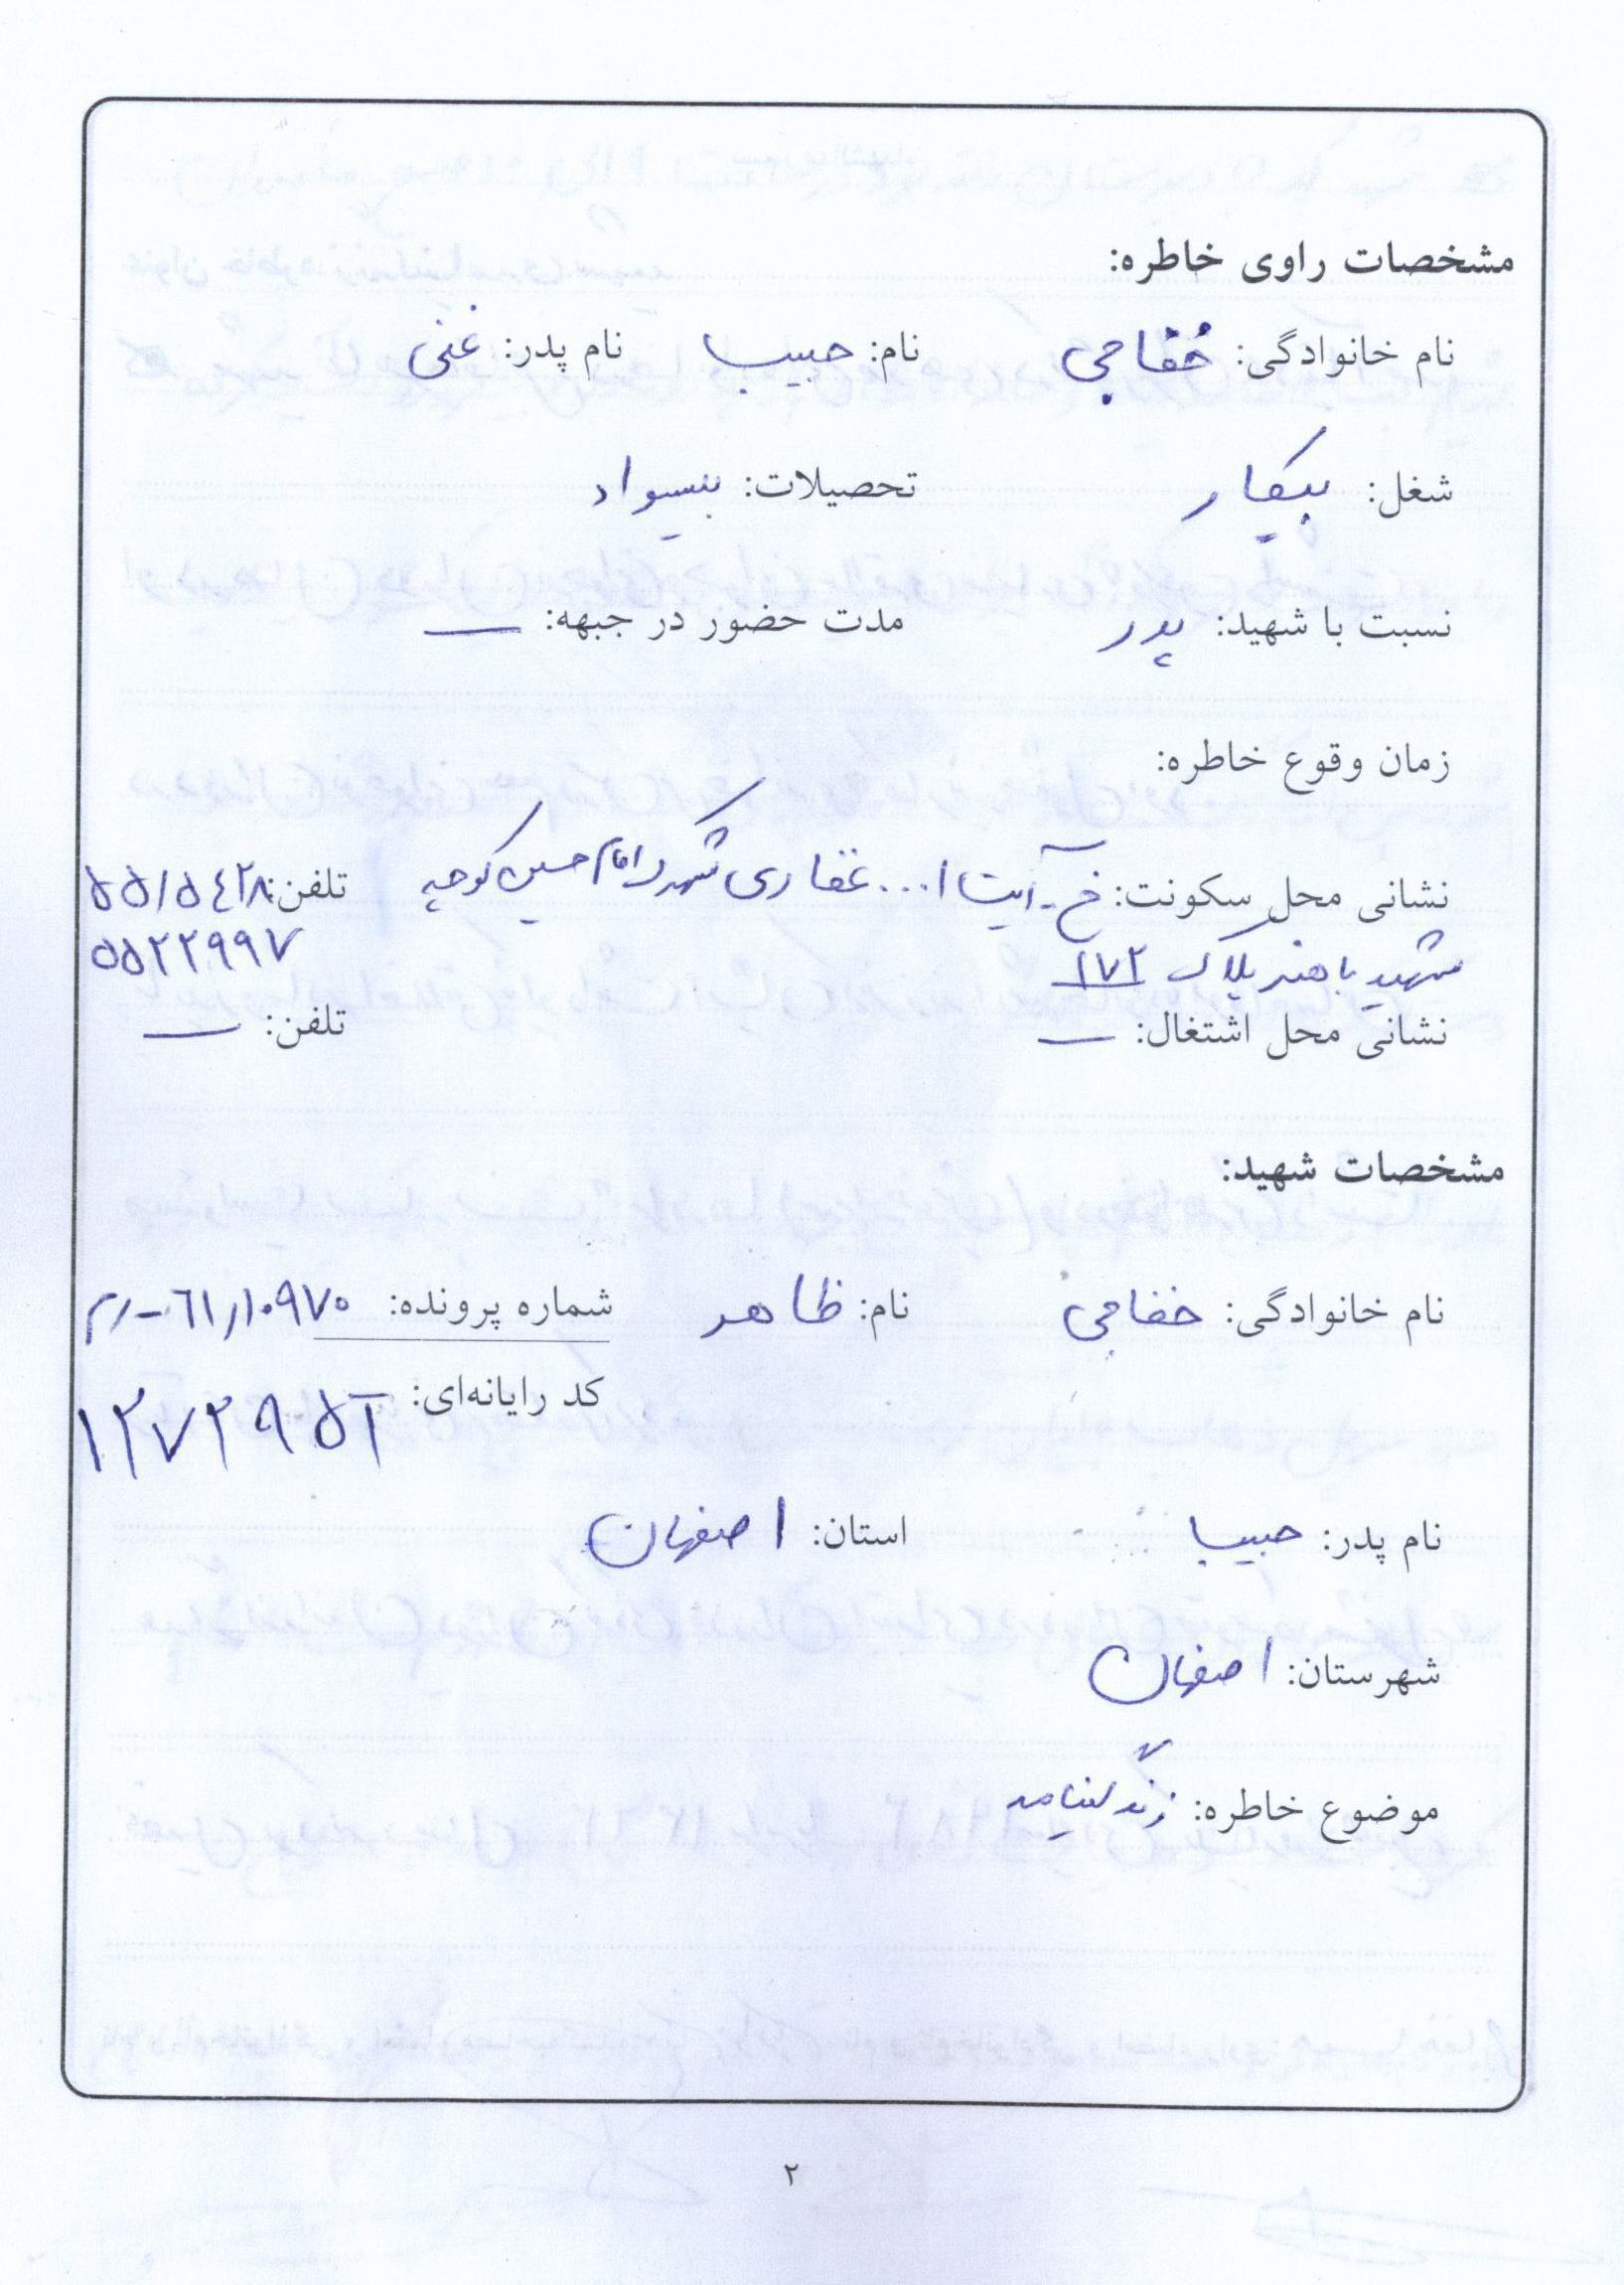 مشخصات راوی خاطره:
نام خانوادگی: خفاجی نام: حبیب نام پدر: غنی
شغل: بیکار تحصیلات: بیسواد
نسبت با شهید: پدر مدت حضور در جبهه: ـــ
زمان وقوع خاطره:
نشانی محل سکونت: خ - آیت ا... غفاری شهرک امام حسین کوچه تلفن: ۵۵۱۵۴۲۸
شهید باهنر پلاک ۱۷۲ ۵۵۲۲۹۹۷
نشانی محل اشتغال: ـــ تلفن: ـــ
مشخصات شهید:
نام خانوادگی: خفاجی نام: ظاهر شماره پرونده: ۶۱/۱۰۹۷۰
کد رایانه‌ای:
نام پدر: حبیب استان: اصفهان
شهرستان: اصفهان
موضوع خاطره: زندگینامه
۲